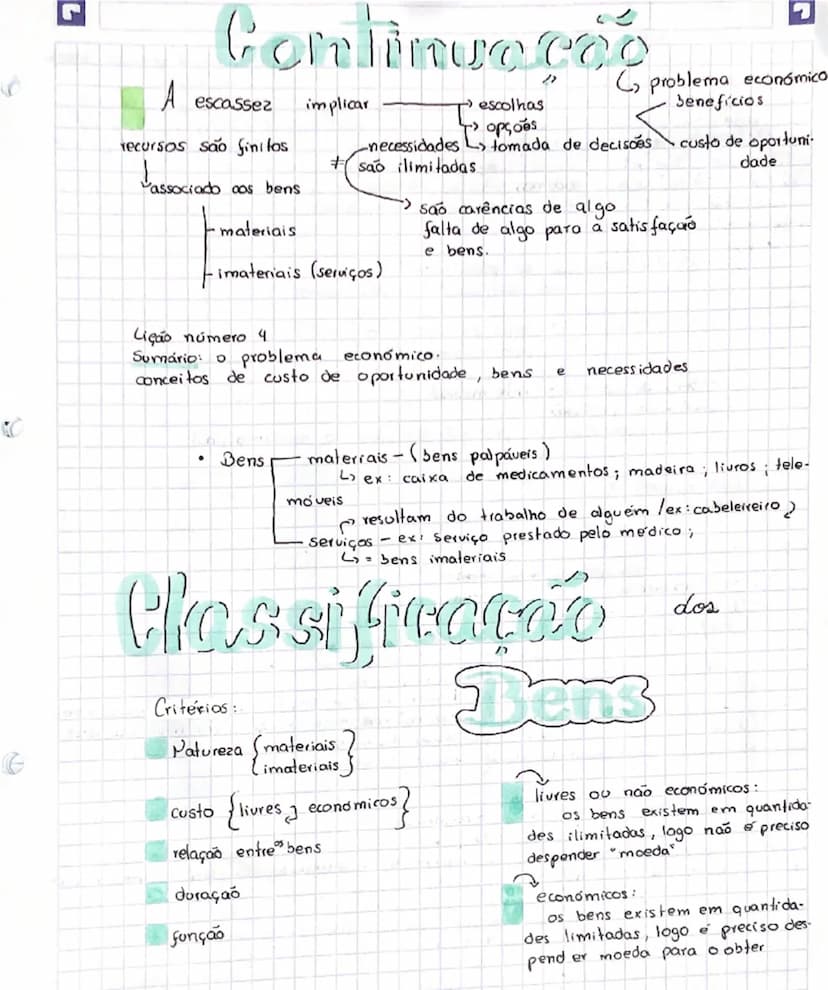 Continuação
A escassez implicar → escolhas
↳ problema económico
benefícios
↳ opções
recursos são finitos
necessidades ↳ tomada de decisões
custo de oportuni-
dade
≠ são ilimitadas
associado aos bens
→ são carências de algo
falta de algo para a satisfação
e bens.
materiais
imateriais (serviços)
Lição número 4
Sumário: o problema económico.
conceitos de custo de oportunidade, bens e necessidades
• Bens
materiais - (bens palpáveis)
↳ ex: caixa de medicamentos; madeira; livros; tele-
móveis
resultam do trabalho de alguém /ex: cabeleireiro)
serviços - ex: serviço prestado pelo médico;
↳ = bens imateriais
Classificação dos
Bens
Critérios:
Natureza {materiais
imateriais}
custo {livres, económicos}
relação entre os bens
duração
função
livres ou não económicos:
os bens existem em quantida-
des ilimitadas, logo não é preciso
despender "moeda"
económicos:
os bens existem em quantida-
des limitadas, logo é preciso des-
pender moeda para o obter